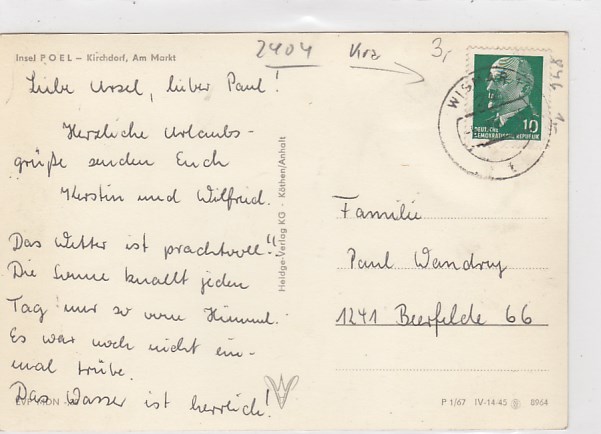 2404 Krz 3,
Insel POEL – Kirchdorf, Am Markt
Liebe Ursel, lieber Paul!
Herzliche Urlaubs-
grüße senden Euch
Kerstin und Wilfried.
Das Wetter ist prachtvoll!
Die Sonne knallt jeden
Tag nur so vom Himmel.
Es war noch nicht ein-
mal trübe.
Das Wasser ist herrlich!
Heldge-Verlag KG · Köthen/Anhalt
WISMAR
10
DEUTSCHE
DEMOKRATISCHE REPUBLIK
Familie
Paul Wandrey
1241 Beerfelde 66
P 1/67 IV-14-45 8964